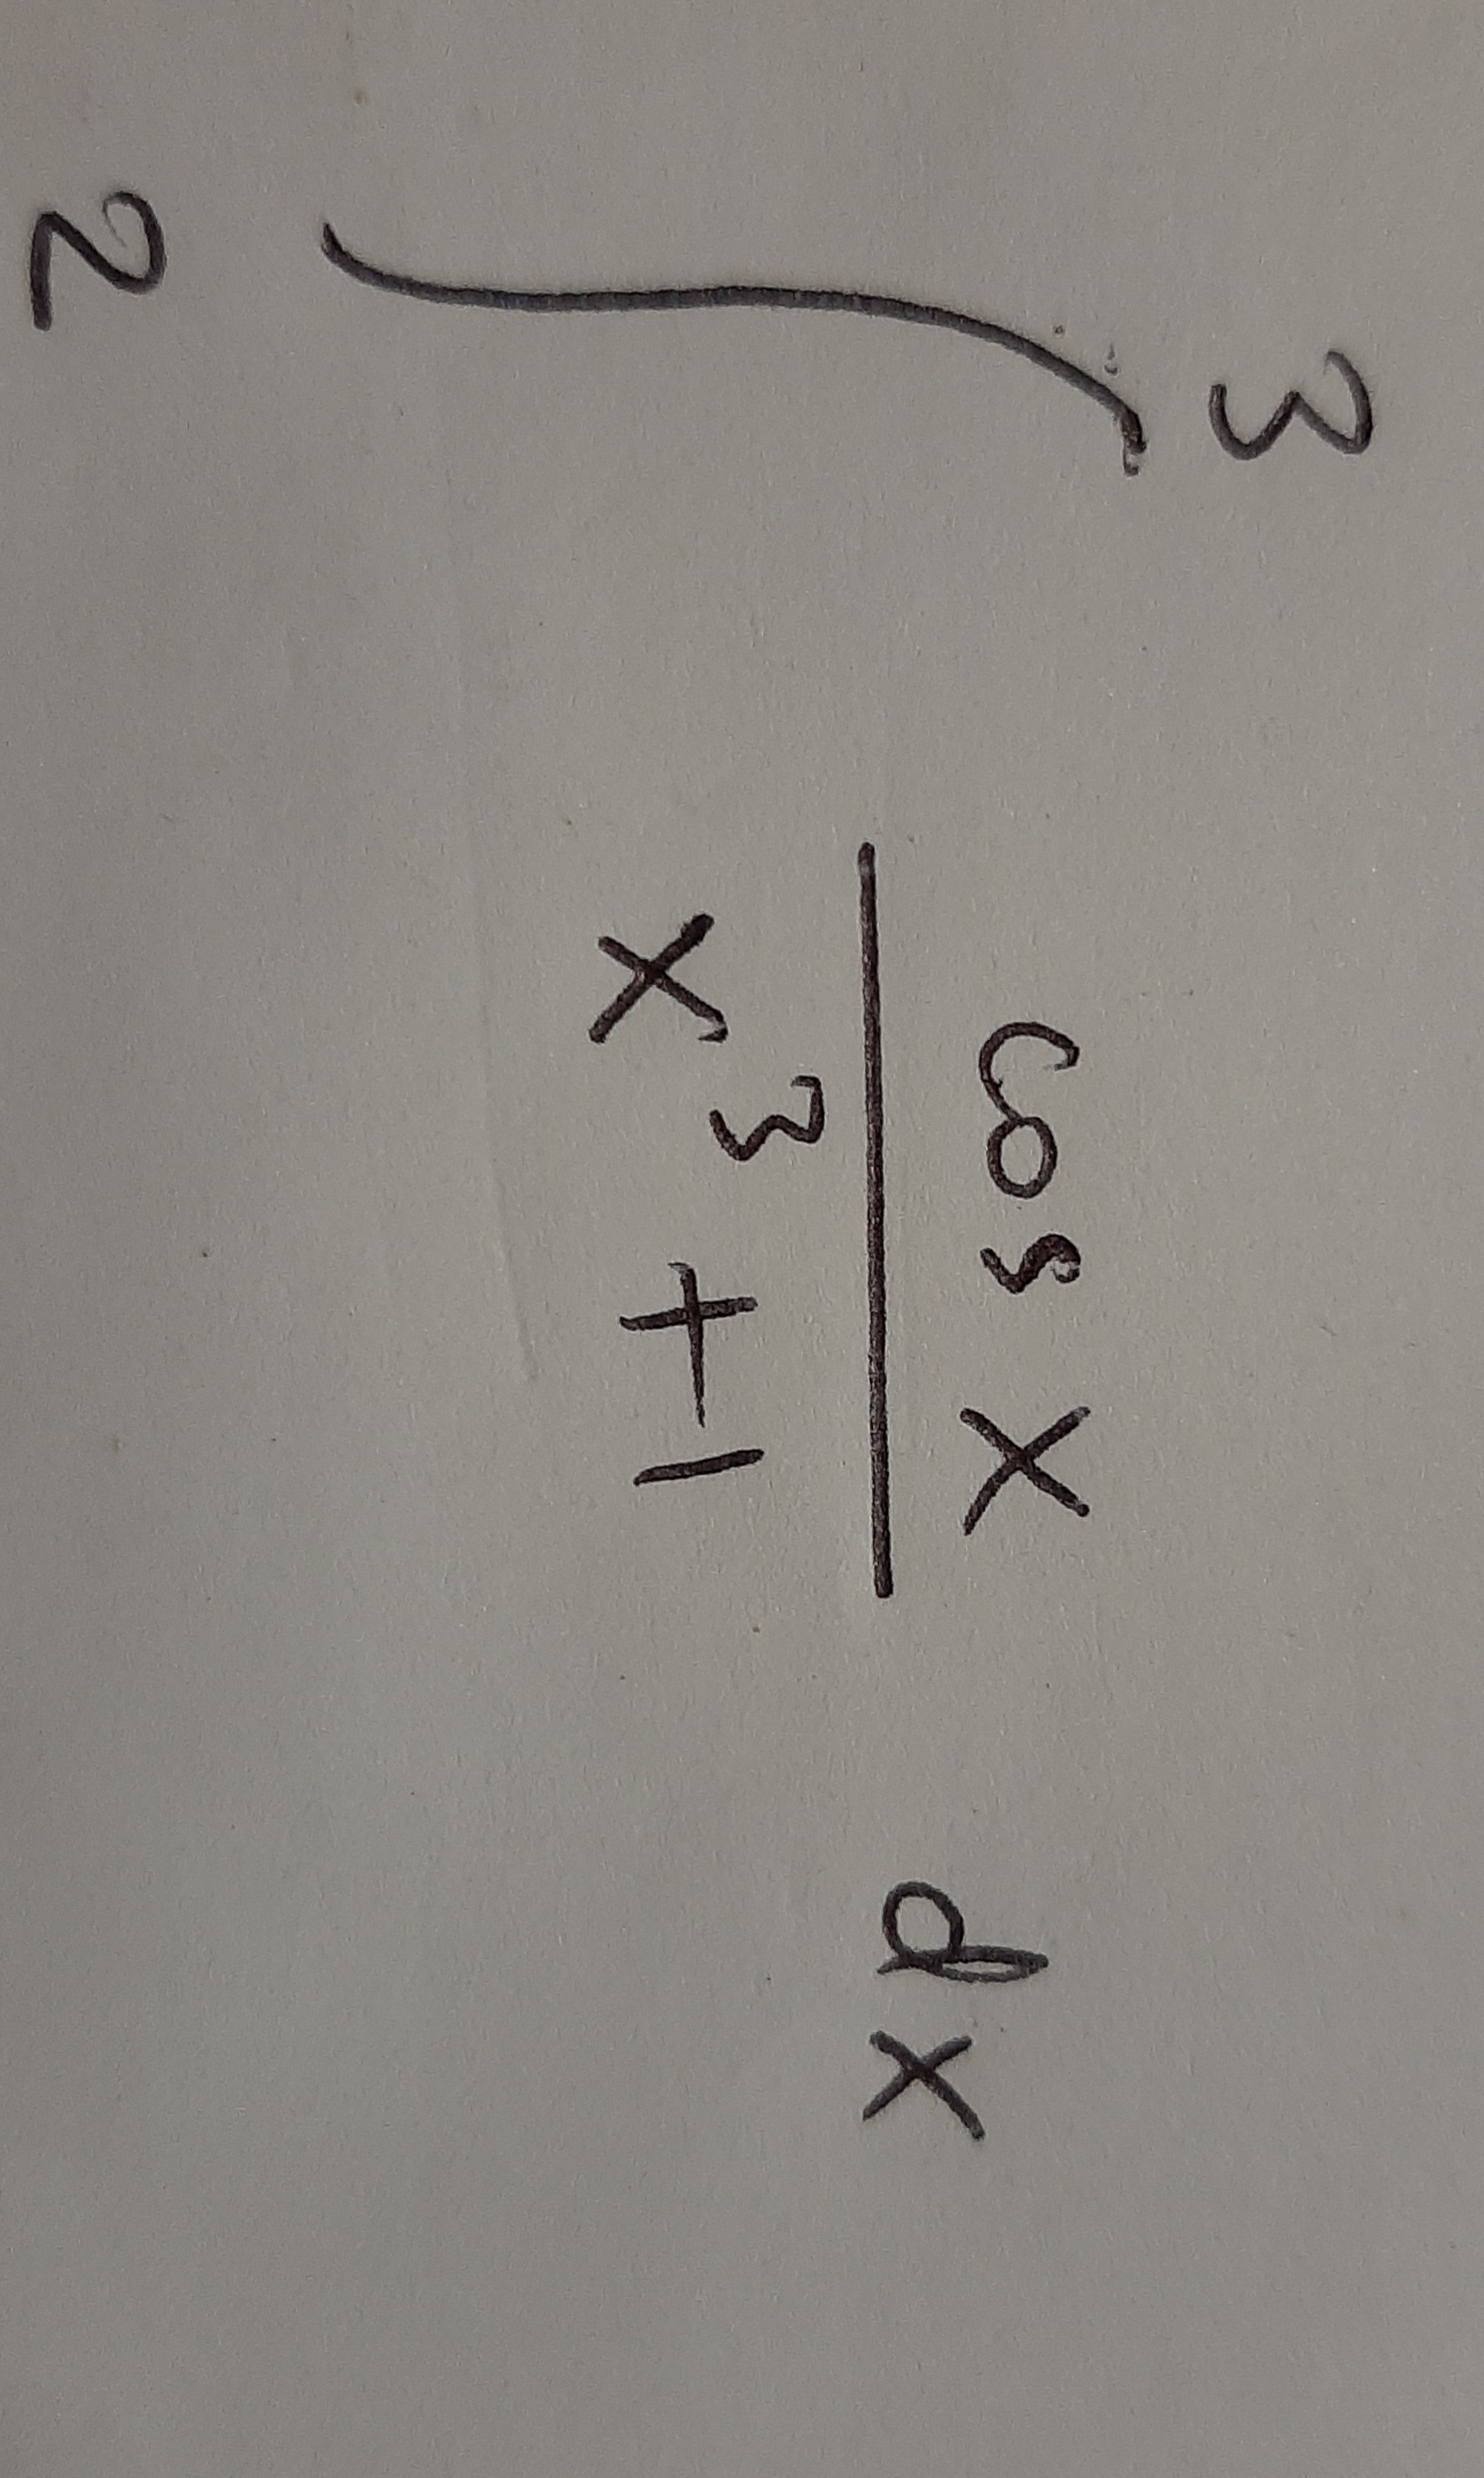 3
∫ cos x / x³ + 1 dx
2